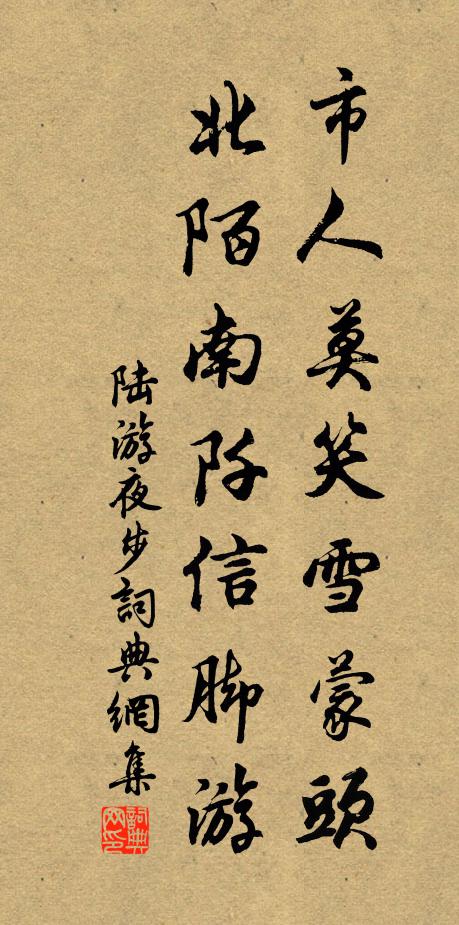 市人莫笑雪蒙頭
北陌南阡信脚游
陆游夜步詞典網集
詞典网印